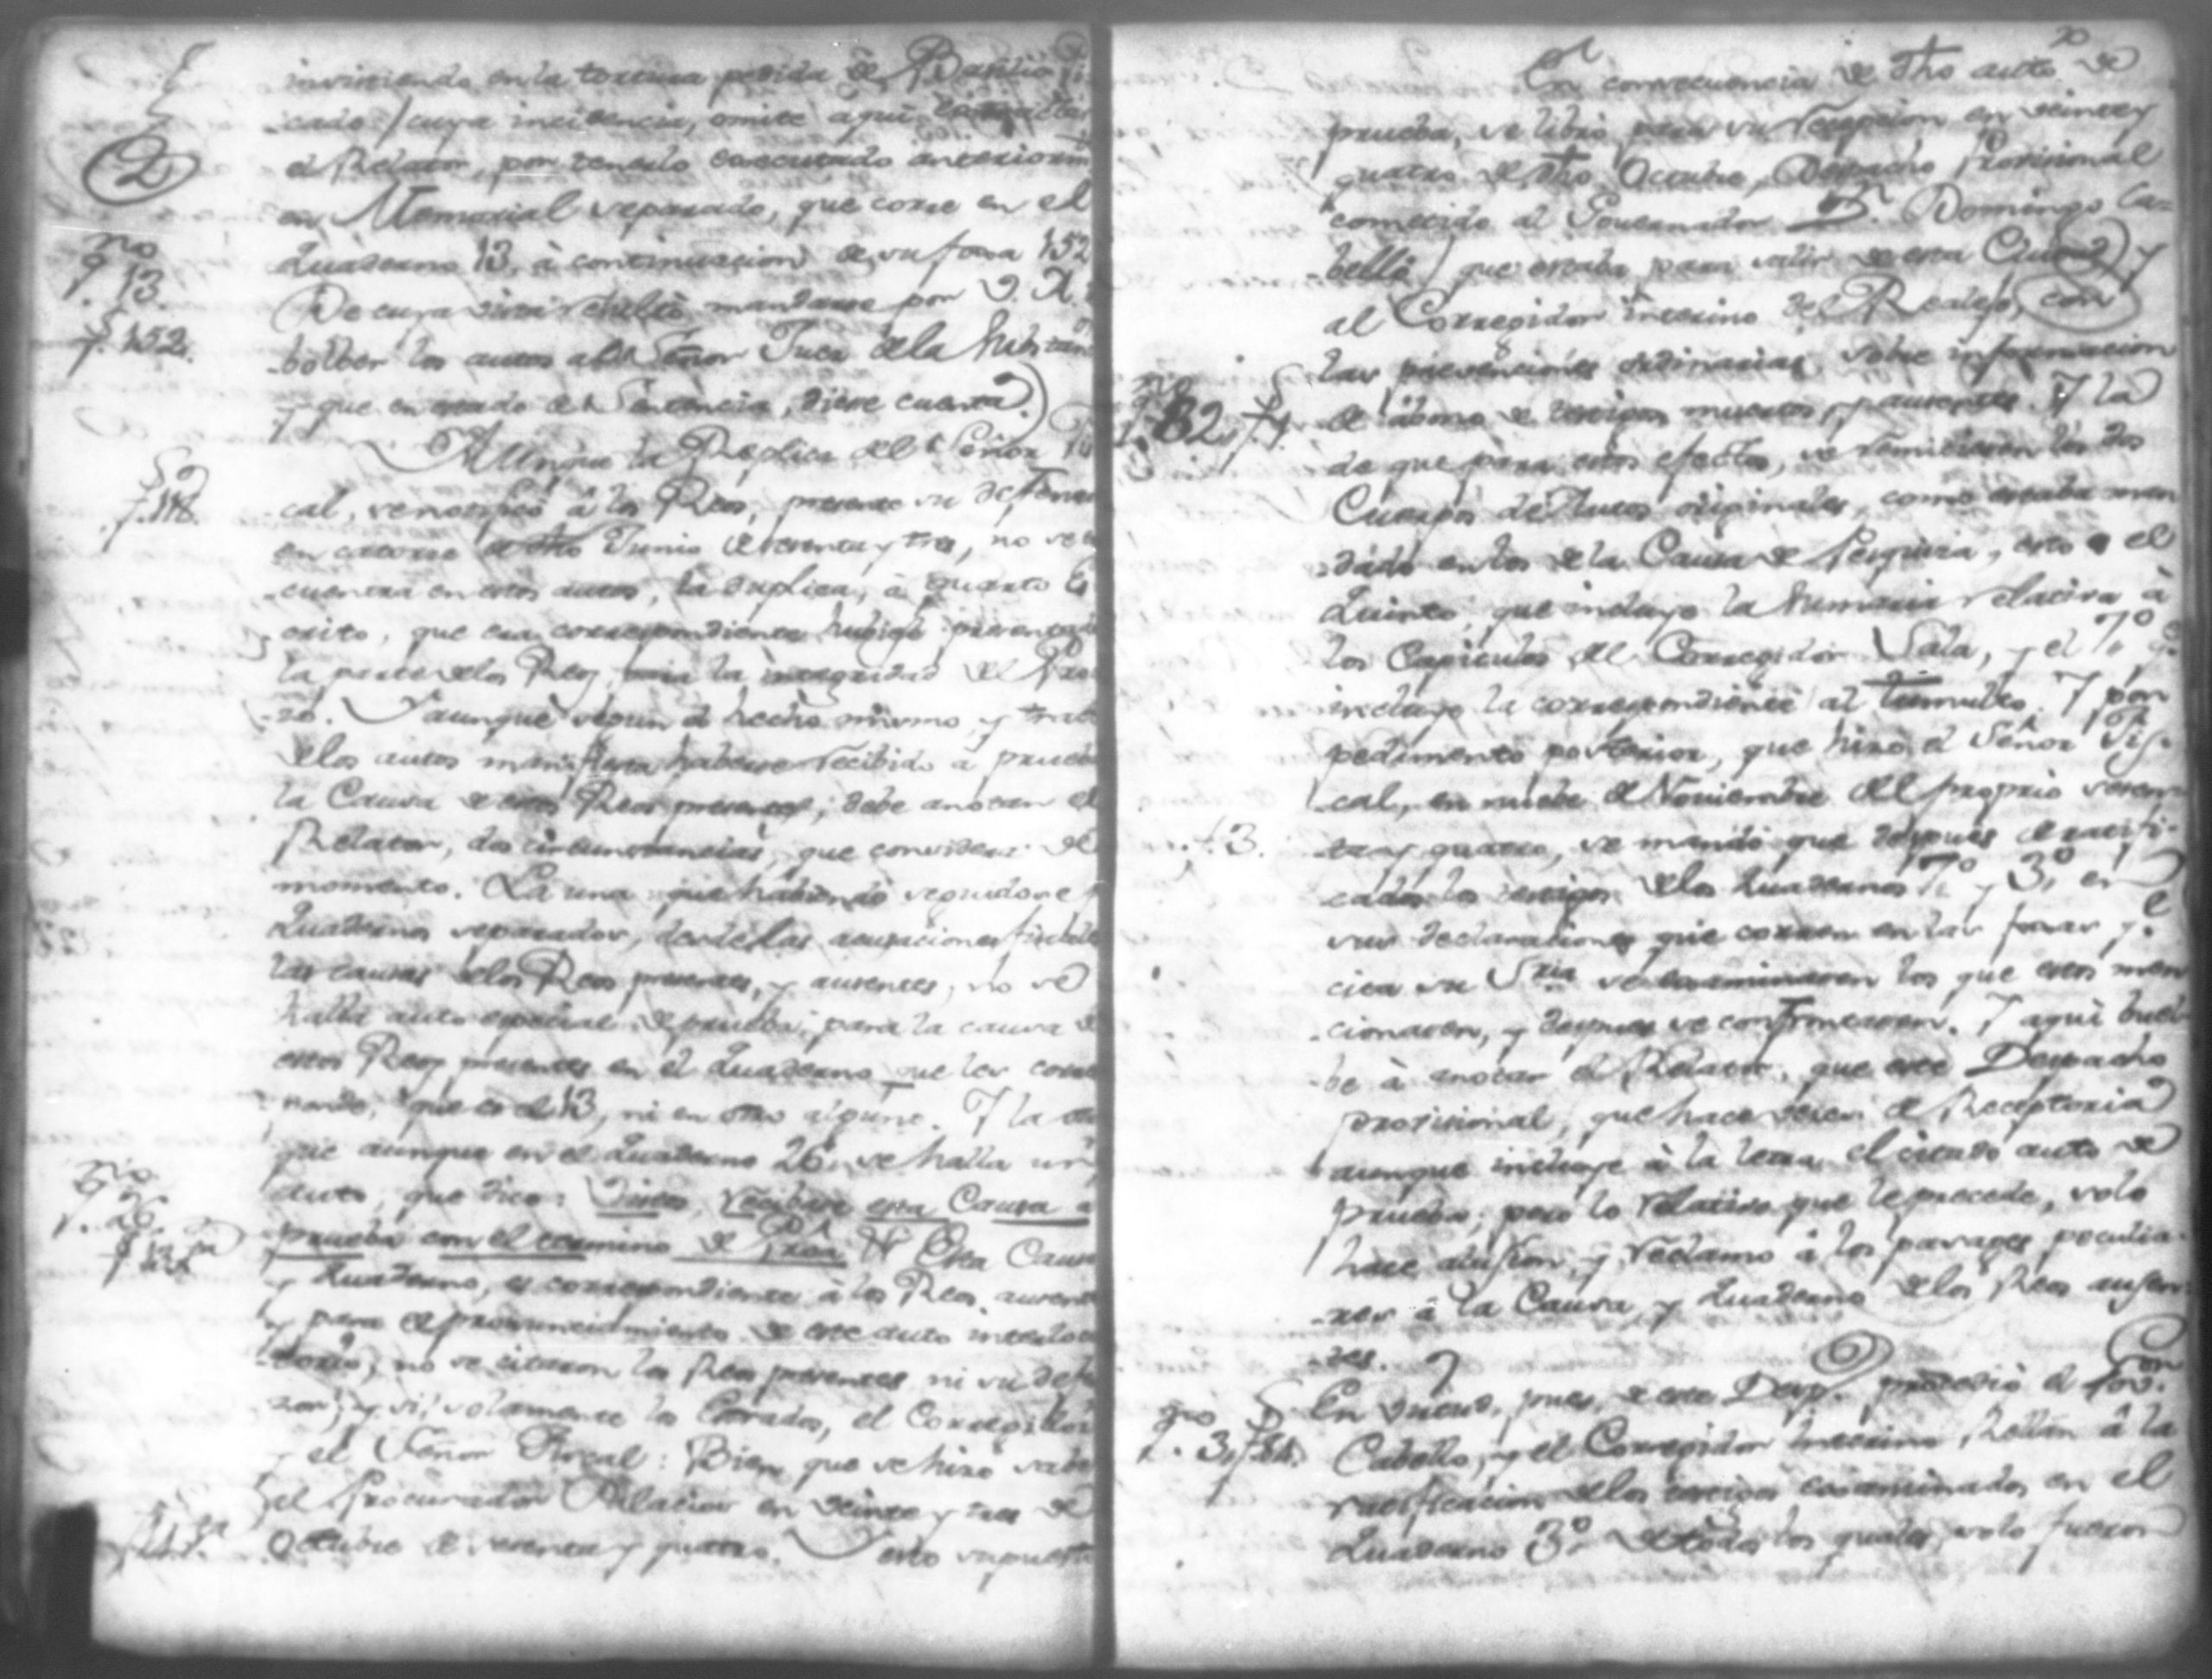 insistiendo en la tortura pedida de Basilio Pi
cado / cuya incidencia, omite aqui
el Relator, por tenerlo executado anteriorm
en Memorial separado, que corre en el
2
Quaderno 13, à continuacion de su foxa 152
qno 13.
f. 152.
De cuya vista resultò mandarse por V. A.
bolber los autos al Señor Juez de la Substan
y que en estado de Sentencia, diese cuenta.)
Aunque la Replica del Señor Fis
f. 118.
cal, se notificò à los Reos, presente su defensor
en catorze de dho Junio de sesenta y tres, no se en
cuentra en estos autos, la duplica, ò quarto Es
crito, que era correspondiente hubiese presentado
la parte de los Reos, para la integridad del Pro
zo. Y aunque segun el hecho mismo, y trato
de los autos manifiesta haberse recibido à prueba
la Causa de estos Reos presentes; debe anotar el
Relator, dos circunstancias, que considera de
momento. La una que habiendo seguidose p
Quadernos separados, desde las acusaciones fiscales
las causas de los Reos presentes, y ausentes, no se
halla auto especial de prueba, para la causa de
estos Reos presentes en el Quaderno que les corres
ponde, que es el 13, ni en otro alguno. Y la otra
que aunque en el Quaderno 26, se halla un
qno
26.
auto, que dice: Vistos, recibase esta Causa a
prueba con el termino de Orda Esta Causa
y Quaderno, es correspondiente à los Reos ausentes
y para el pronunciamiento de este auto interlocu
torio, no se citaron los Reos presentes, ni su defen
zor; y si, solamente los Estrados, el Corregidor
y el Señor Fiscal: Bien, que se hizo saber
el Procurador Palacios en veinte y tres de
Octubre de sesenta y quatro. Y esto supuesto
20
En consecuencia de dho auto de
prueba, se librò para su recepcion en veinte y
quatro de dho Octubre, Despacho Provisional
cometido al Governador Dn. Domingo Ca-
bello / que estaba para salir de esta Ciudad) y
al Corregidor interino del Realejo, con
las prevenciones ordinarias, sobre informacion
qno
32. f. 1.
de abono de testigos muertos, y ausentes. Y la
de que para estos efectos, se remitieron los dos
Cuerpos de Autos originales, como estaba man
dado en los de la Causa de Pesquiza, esto es el
Quinto, que incluye la Sumaria relativa à
los Capitulos del Corregidor Sala, y el 7º q.e
incluye la correspondiente al tumulto. Y por
pedimento posterior, que hizo el Señor Fis-
cal, en nuebe de Noviembre del proprio sesen
f. 3.
ta y quatro, se mandò que despues de ratifi-
cados los testigos de los Quadernos 7º y 3º en
sus declaraciones que corren en las foxas q.e
cita su Sria se examinasen los que estos men
cionasen, y despues se confrontasen. Y aqui buel
be à anotar el Relator, que este Despacho
provisional, que hace veces de Receptoria
aunque incluye à la letra el citado auto de
prueba; pero lo relativo que le precede, solo
hace alusion, y reclamo à los parages peculia-
res à la Causa, y Quaderno de los Reos ausen
tes.
En virtud, pues, de este Desp.o procediò el Gov.or
qno 3, f. 84.
Cabello, y el Corregidor interino Rellan à la
ratificacion de los testigos examinados en el
Quaderno 3º de todos los quales, solo fueron